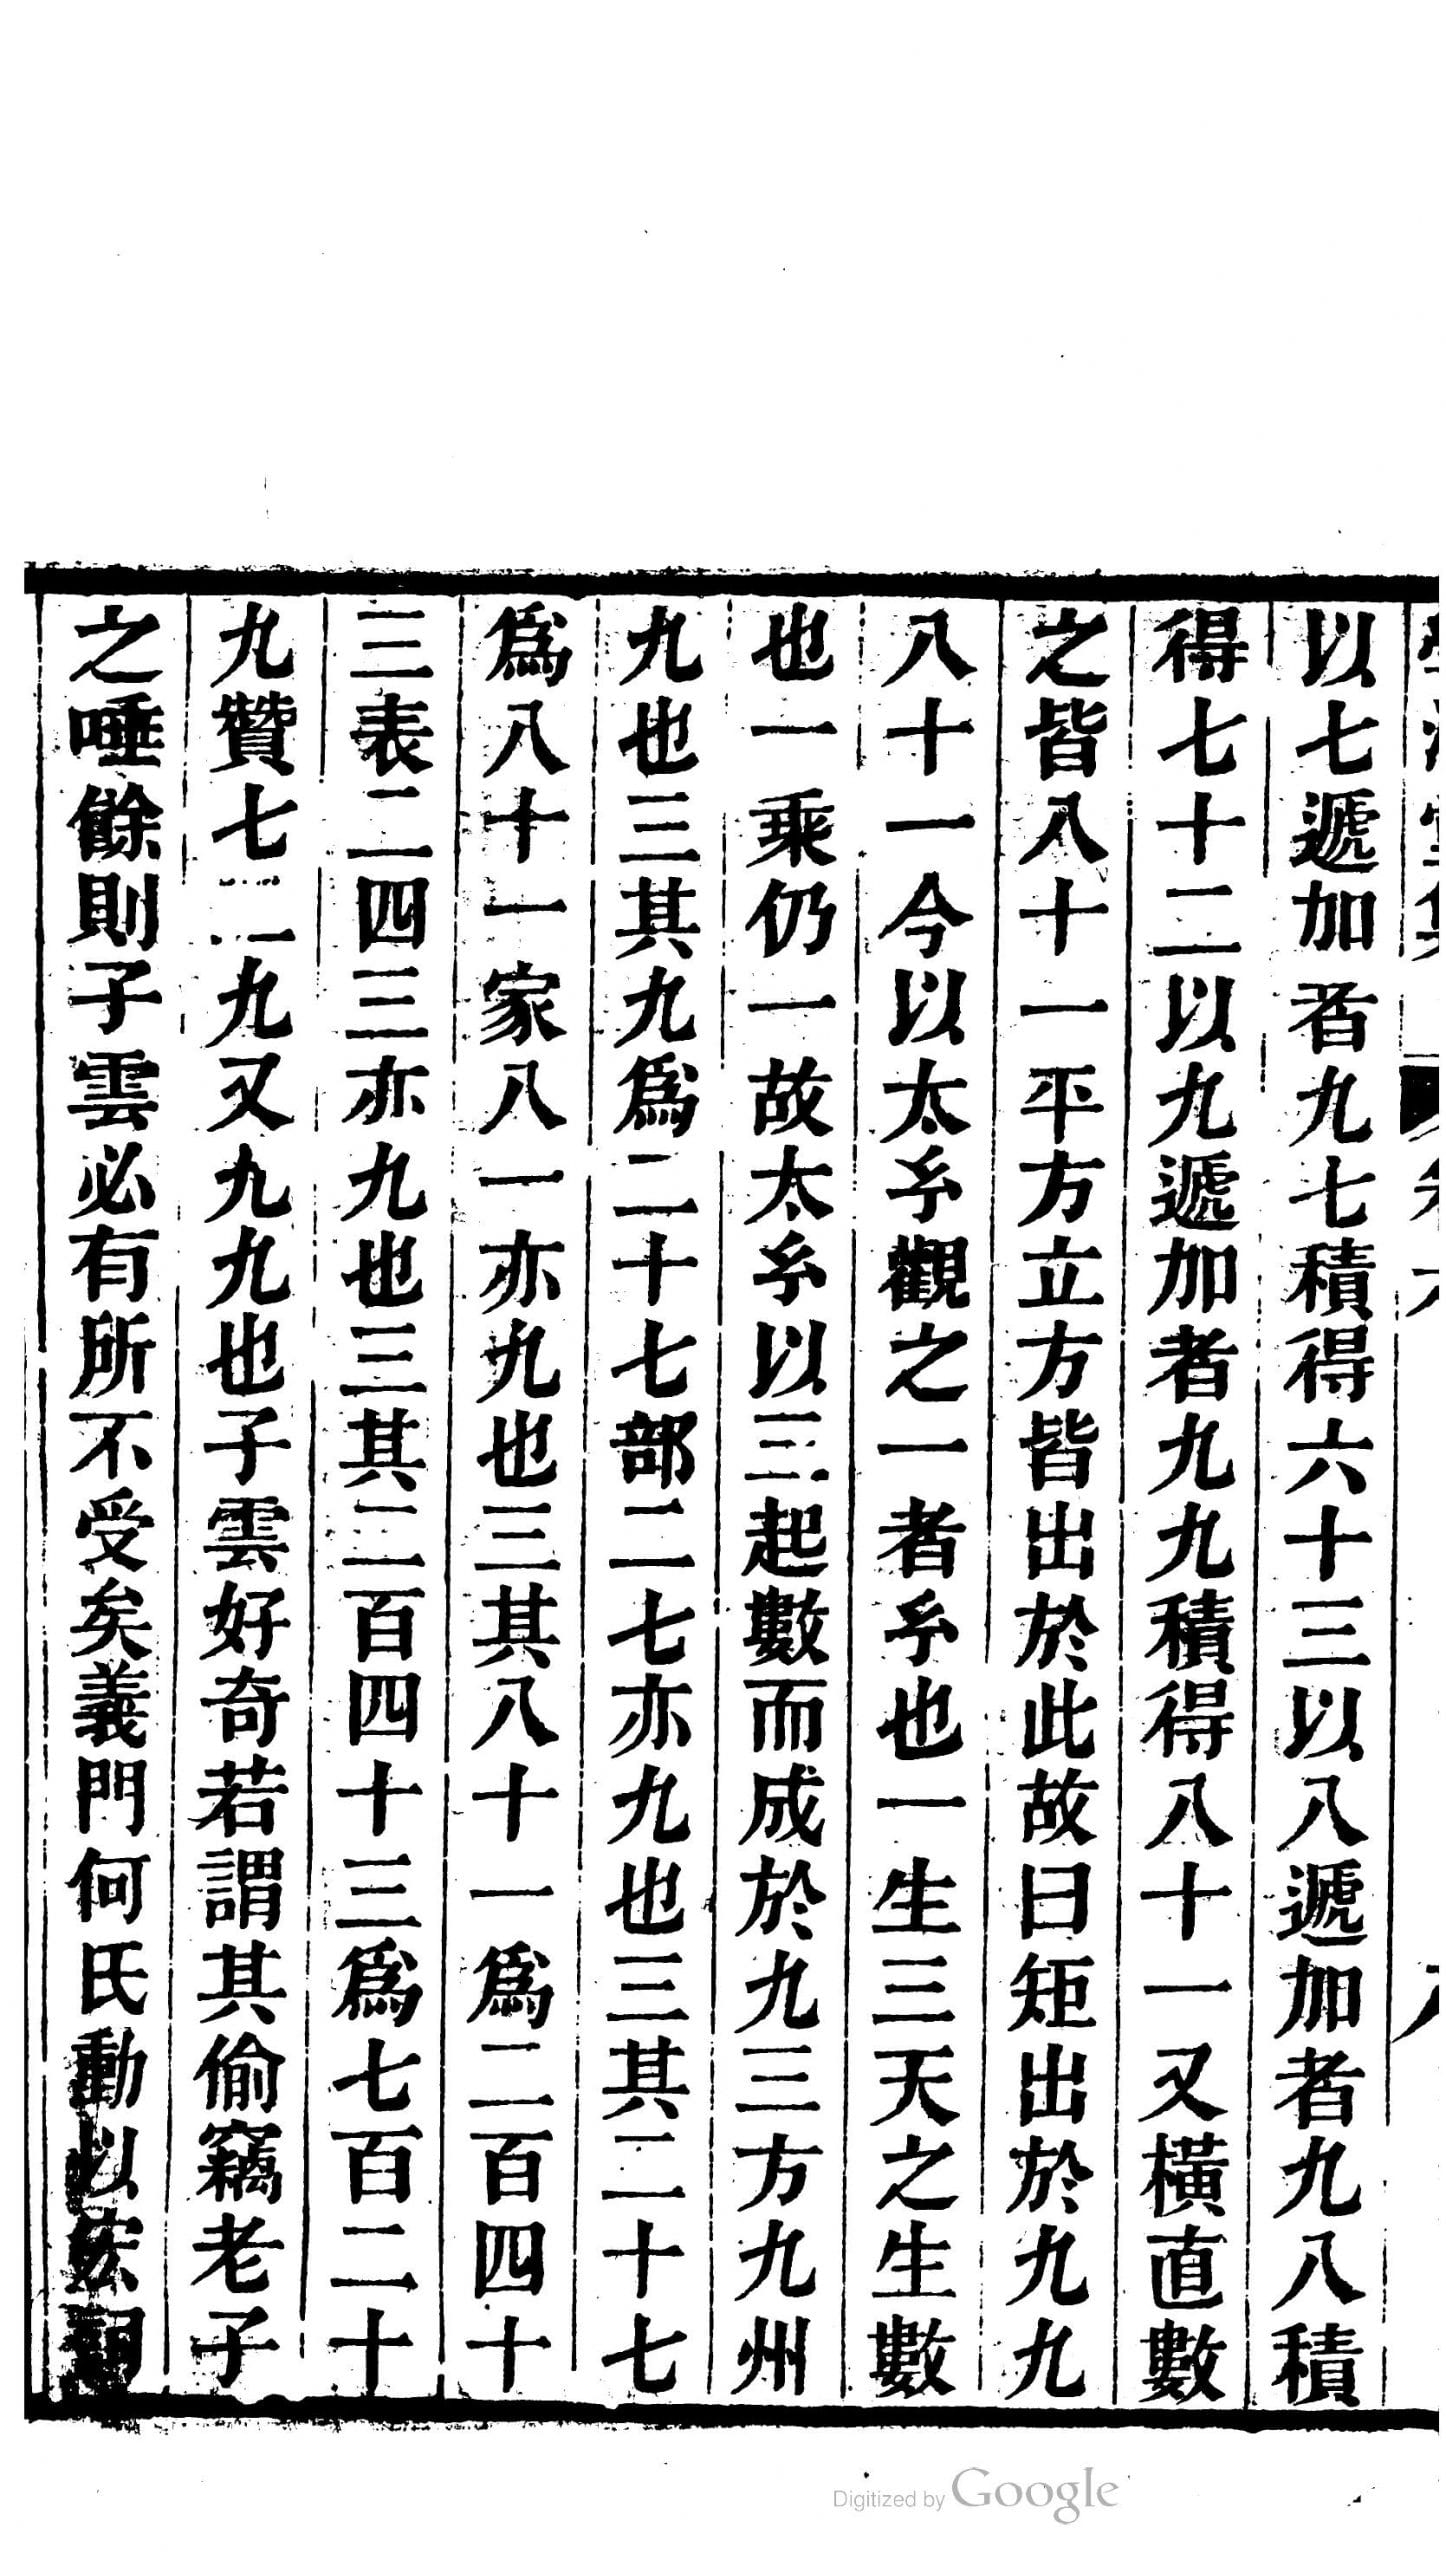 以七遞加者九七積得六十三以八遞加者九八積
得七十二以九遞加者九九積得八十一又橫直數
之皆八十一平方立方皆出於此故曰矩出於九九
八十一今以太玄觀之一者玄也一生三天之生數
也一乘仍一故太玄以三起數而成於九三方九州
九也三其九爲二十七部二七亦九也三其二十七
爲八十一家八一亦九也三其八十一爲二百四十
三表二四三亦九也三其二百四十三爲七百二十
九贊七二九又九九也子雲好奇若謂其偷竊老子
之唾餘則子雲必有所不受矣義門何氏動以宏詞
Digitized by Google